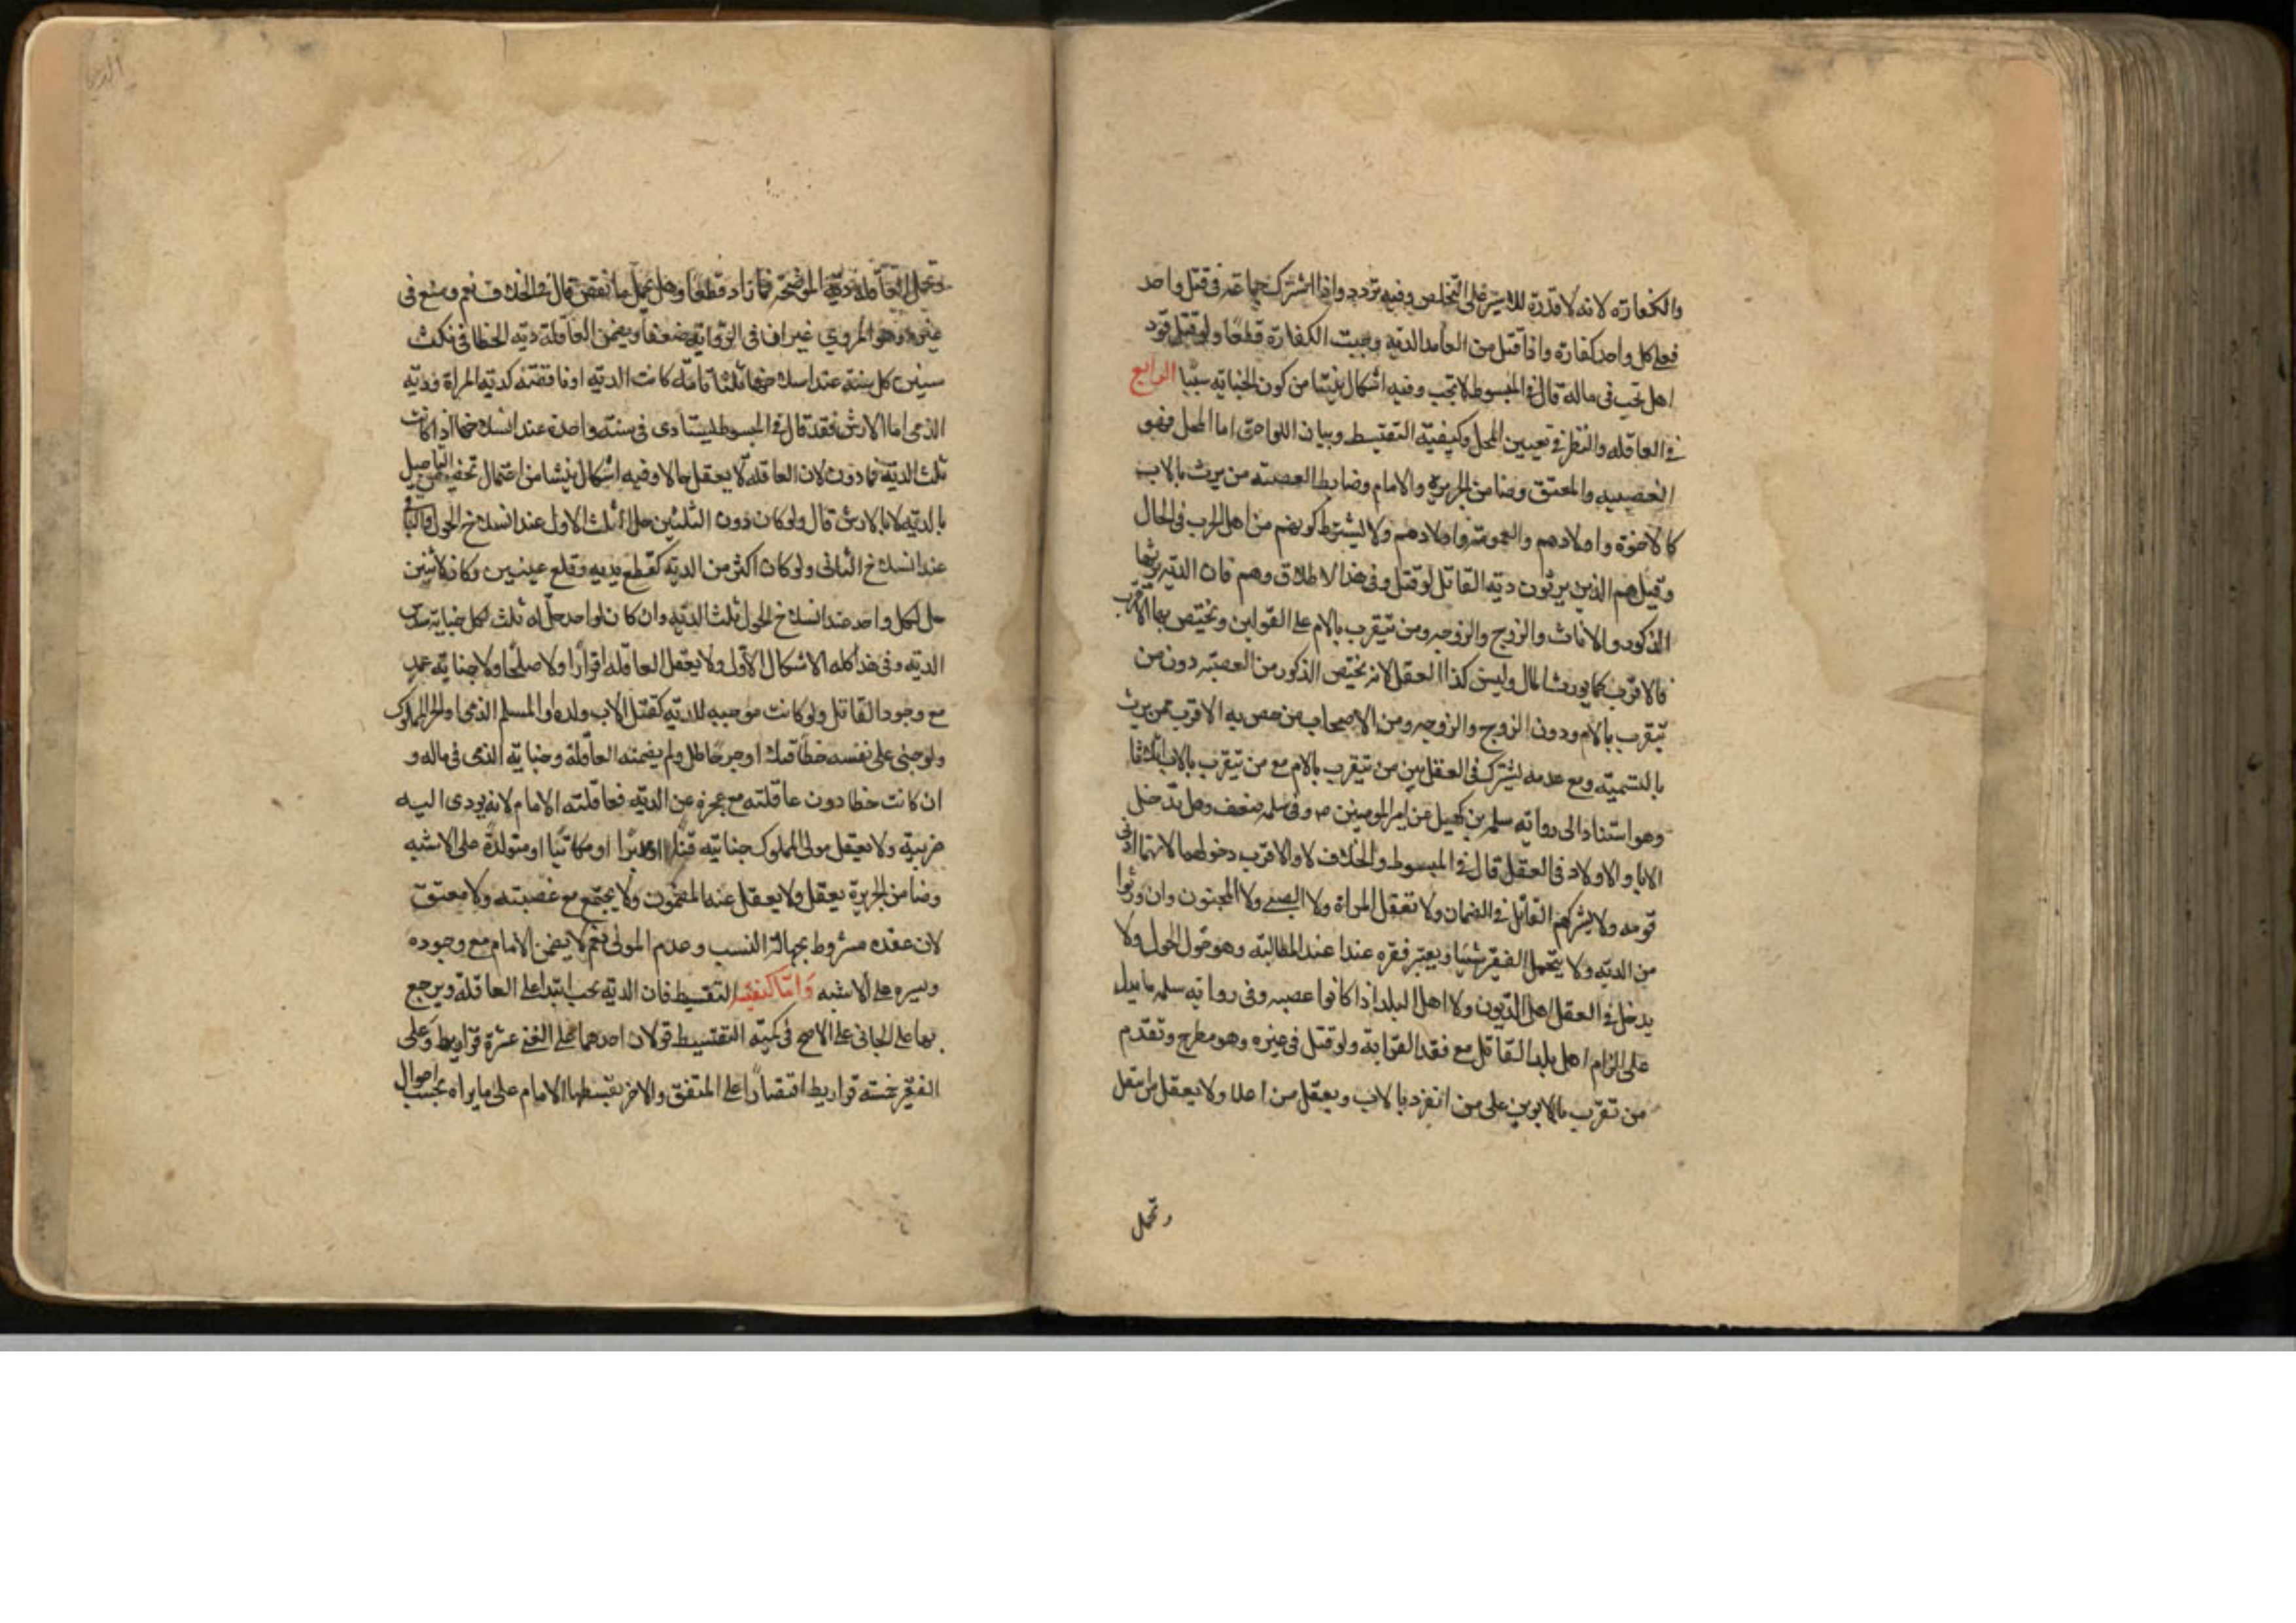 والكفارة لانه لا قدرة للاسير على التخلص وفيه تردد واذا اشترك جماعة في قتل واحد
فعلى كل واحد كفارة واذا قبل من العامد الدية وجبت الكفارة قطعا ولو قتل قود
اهل تجب في ماله قال في المبسوط لا تجب وفيه اشكال ينشا من كون الجناية سببا الرابع
في العاقله والنظر في تعيين المحل وكيفية التقسيط وبيان اللواحق اما المحل فهو
العصبه والمعتق وضامن الجريرة والامام وضابط العصبه من يرث بالاب
كالاخوة واولادهم والعمومة واولادهم ولا يشترط كونهم من اهل الارث في الحال
وقيل هم الذين يرثون دية القاتل لو قتل وفي هذا الاطلاق وهم فان الديه يرثها
الذكور والاناث والزوج والزوجه ومن يتقرب بالام على القولين ويختص بها الاقرب
فالاقرب كما يورث المال وليس كذا العقل لانه يختص الذكور من العصبه دون من
يتقرب بالام ودون الزوج والزوجه ومن الاصحاب من خص به الاقرب ممن يرث
بالتسمية ومع عدمه يشترك في العقل بين من يتقرب بالام مع من يتقرب بالاب اثلاثا
وهو استنادا الى رواية سلمه بن كهيل عن امير المومنين ع وفي سلمه ضعف وهل تدخل
الابا والاولاد في العقل قال في المبسوط والخلاف لا والاقرب دخولهما لانهما ادنى
قومه ولا يشركهم القاتل في الضمان ولا تعقل المراة ولا الصبي ولا المجنون وان ورثوا
من الدية ولا يتحمل الفقير شيئا ويعتبر فقره عند المطالبة وهو حول الحول ولا
يدخل في العقل اهل الديون ولا اهل البلد اذا كانوا عصبه وفي رواية سلمه ما يدل
على الزام اهل بلد القاتل مع فقد القرابة ولو قتل في غيره وهو مطرح وتقدم
من تقرب بالابوين على من انفرد بالاب ويعقل من اعلا ولا يعقل من اسفل
وتحمل
وتحمل العاقلة دية الموضحة فما زاد قطعا وهل تحمل ما نقص قال في الخلاف نعم ومنع في
غيره وهو المروي غير ان في الرواية ضعفا ويضمن العاقلة ديه الخطا في ثلث
سنين كل سنة عند انسلاخها ثلثا تامة كانت الدية او ناقصة كدية المراة ودية
الذمي اما الارش فقد قال في المبسوط يستادى في سنة واحدة عند انسلاخها اذا كانت
ثلث الدية فما دون لان العاقلة لا يعقل حالا وفيه اشكال ينشا من احتمال تخصيص التاجيل
بالدية لا بالارش قال ولو كان دون الثلثين حل الثلث الاول عند انسلاخ الحول والباقي
عند انسلاخ الثاني ولو كان اكثر من الدية كقطع يدين وقلع عينين وكان لاثنين
حل لكل واحد عند انسلاخ الحول ثلث الدية وان كان لواحد حل له ثلث لكل جناية سدس
الدية وفي هذا كله الاشكال الاول ولا يعقل العاقله اقرارا ولا صلحا ولا جناية عمد
مع وجود القاتل ولو كانت موجبه للدية كقتل الاب ولده او المسلم الذمي او الحر المملوك
ولو جنى على نفسه خطا قتلا او جرحا طل ولم يضمنه العاقلة وجناية الذمي في ماله و
ان كانت خطا دون عاقلته مع عجزه عن الدية فعاقلته الامام لانه يودى اليه
ضريبة ولا يعقل مولى المملوك جنايته قنا او مدبرا او مكاتبا او متولدة على الاشبه
وضامن الجريرة يعقل ولا يعقل عنه المضمون ولا يجتمع مع عصبته ولا معتق
لان عقده مشروط بجهالة النسب وعدم المولى نعم لا يضمن الامام مع وجوده
ويسره على الاشبه واما كيفية التقسيط فان الدية تجب ابتدا على العاقلة ويرجع
بها على الجاني على الاصح في كمية التقسيط قولان احدهما على الغني عشرة قراريط وعلى
الفقير خمسة قراريط اقتصارا على المتفق والاخر يقسطها الامام على ما يراه بحسب احوال